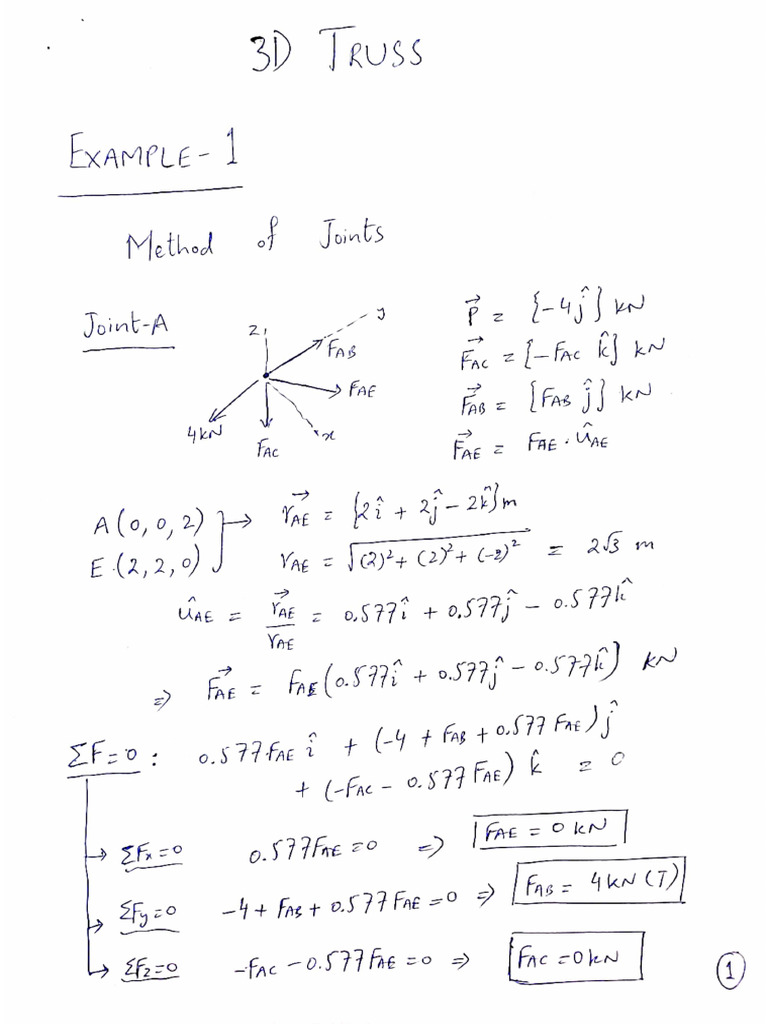 3D TRUSS
EXAMPLE-1
Method of Joints
Joint-A
z
y
F_AB
F_AE
4kN
F_AC
x
P⃗ = {-4ĵ} kN
F⃗_AC = {-F_AC k̂} kN
F⃗_AB = {F_AB ĵ} kN
F⃗_AE = F_AE · û_AE
A(0,0,2)
E(2,2,0)
r⃗_AE = {2î + 2ĵ - 2k̂}m
r_AE = √((2)² + (2)² + (-2)²) = 2√3 m
û_AE = r⃗_AE / r_AE = 0.577î + 0.577ĵ - 0.577k̂
⇒ F⃗_AE = F_AE(0.577î + 0.577ĵ - 0.577k̂) kN
ΣF=0 : 0.577F_AE î + (-4 + F_AB + 0.577 F_AE)ĵ
+ (-F_AC - 0.577 F_AE) k̂ = 0
→ ΣFx=0 0.577F_AE=0 ⇒ F_AE = 0 kN
→ ΣFy=0 -4 + F_AB + 0.577F_AE=0 ⇒ F_AB = 4kN (T)
→ ΣFz=0 -F_AC - 0.577F_AE=0 ⇒ F_AC = 0kN
1